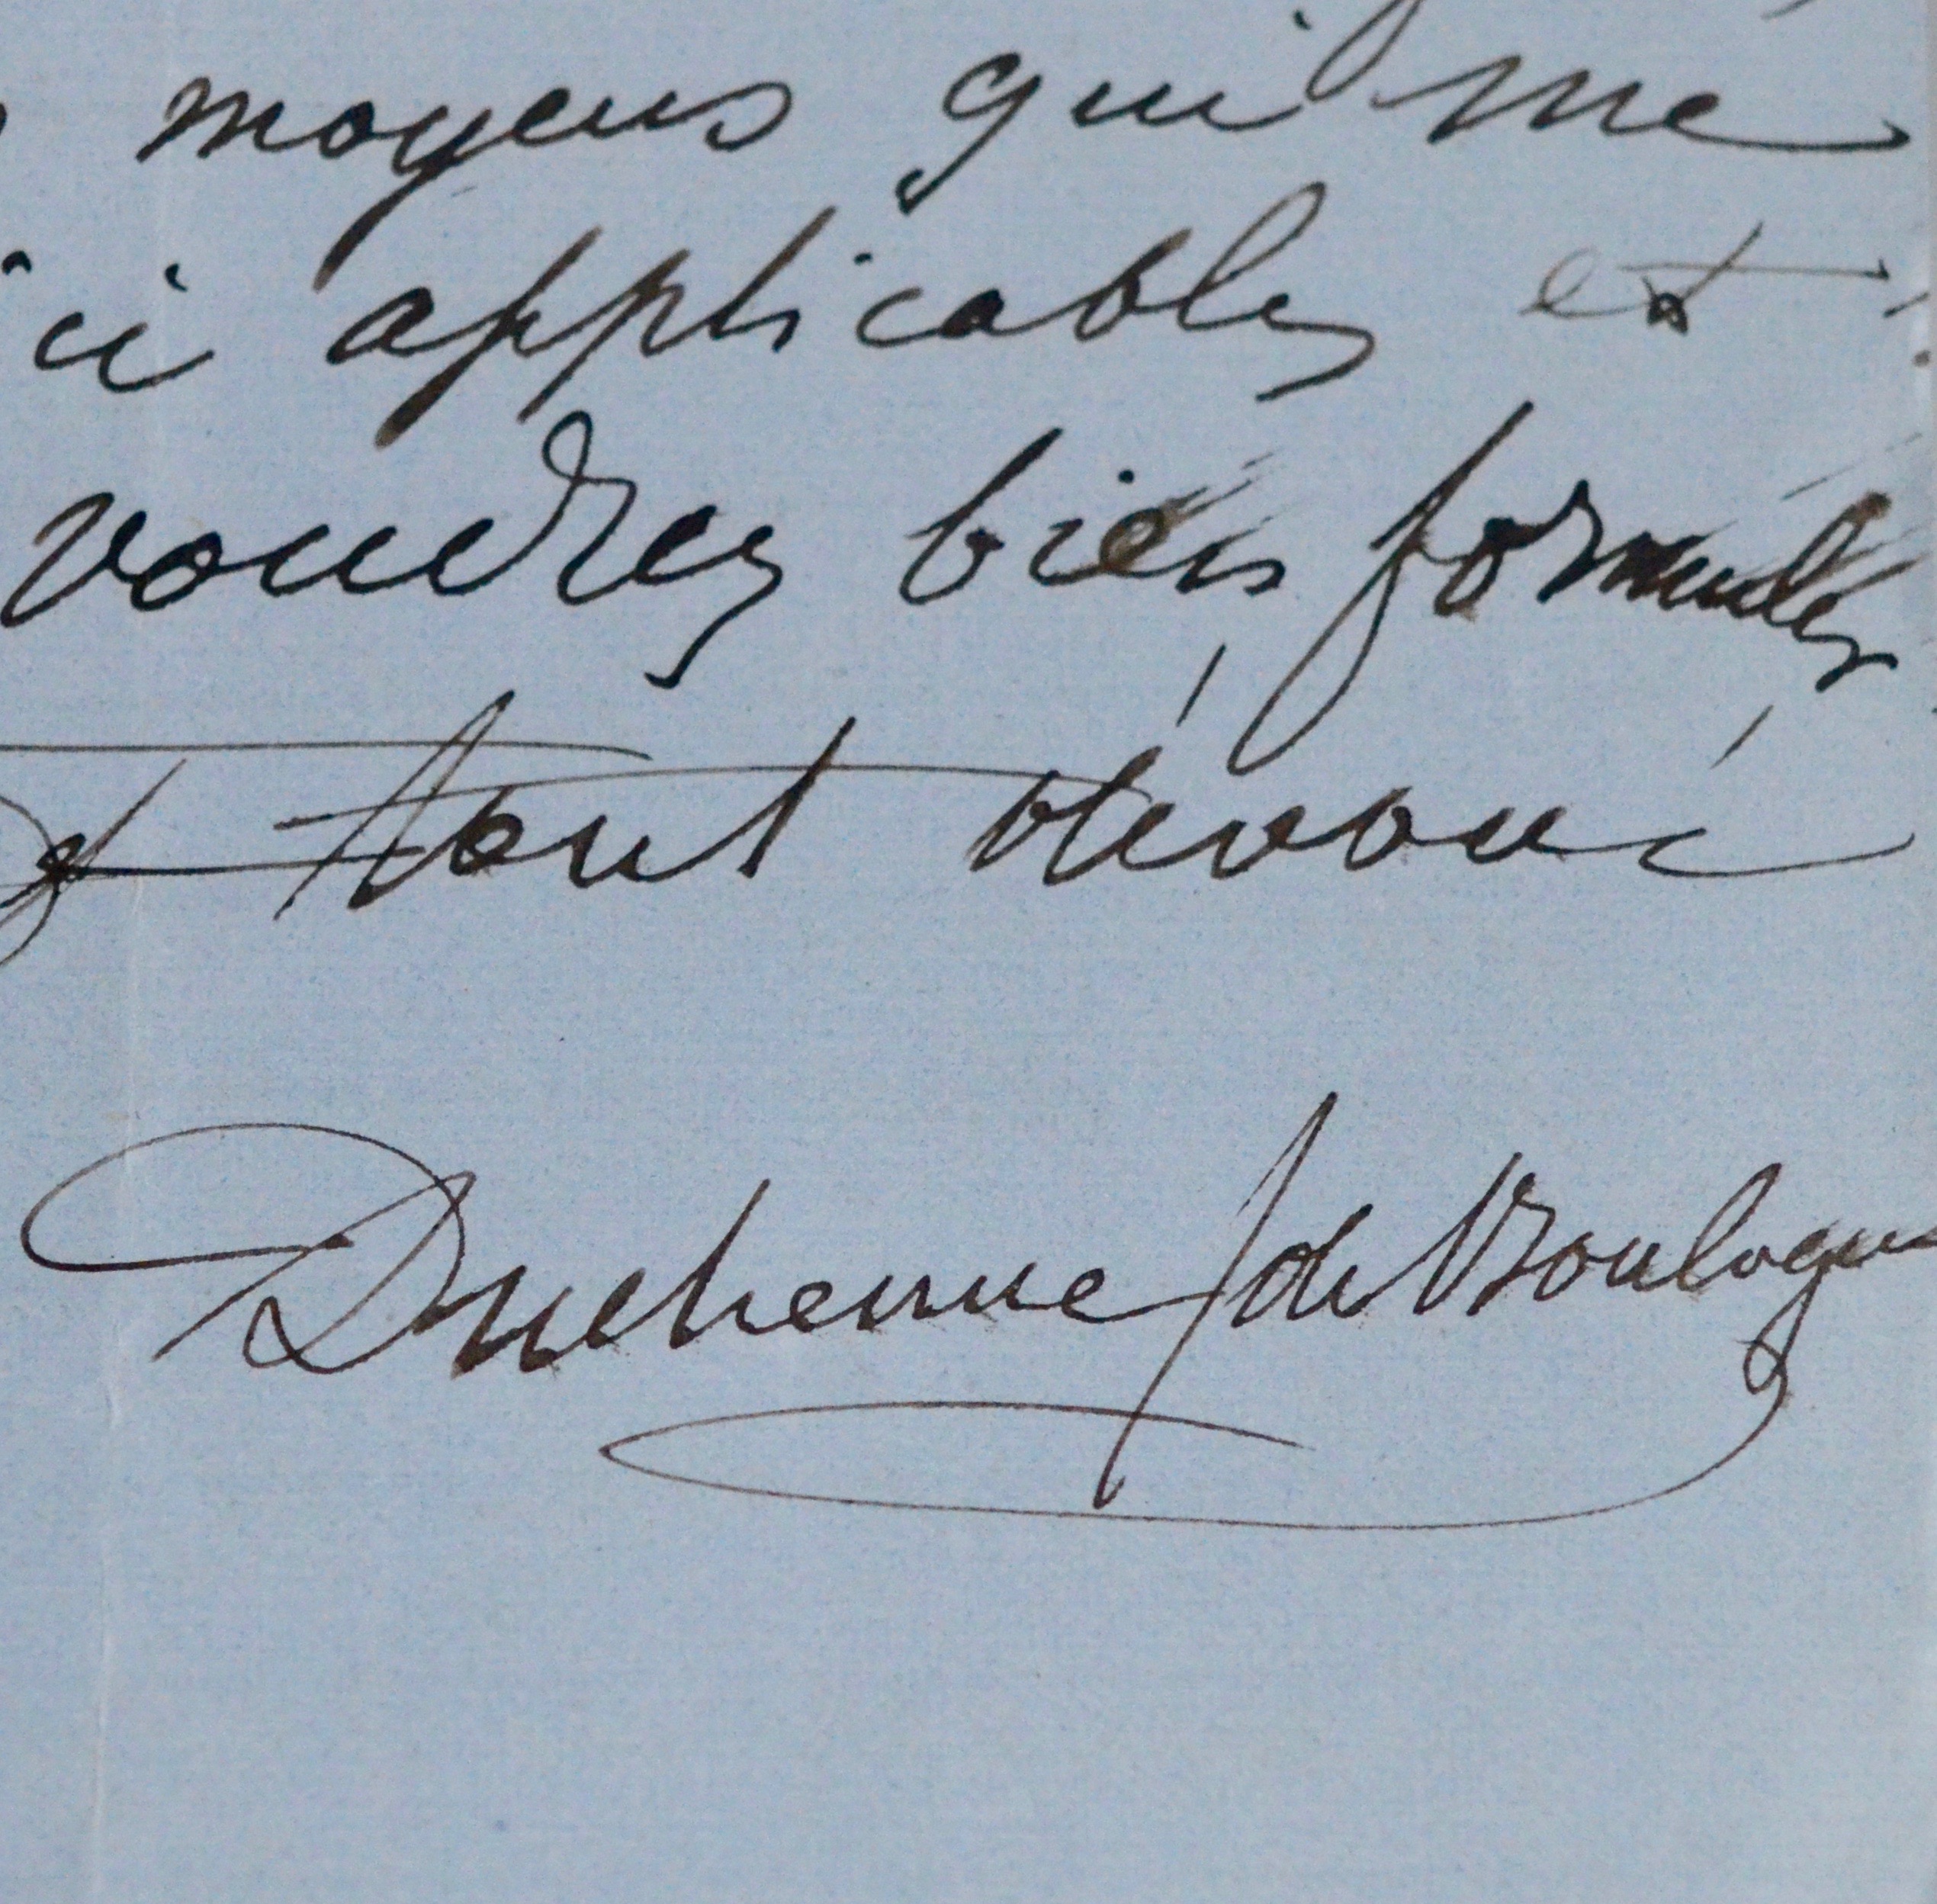 moyens qui me
ici applicables et
voudrez bien formuler
et tout dévoué
Duchenne (de Boulogne